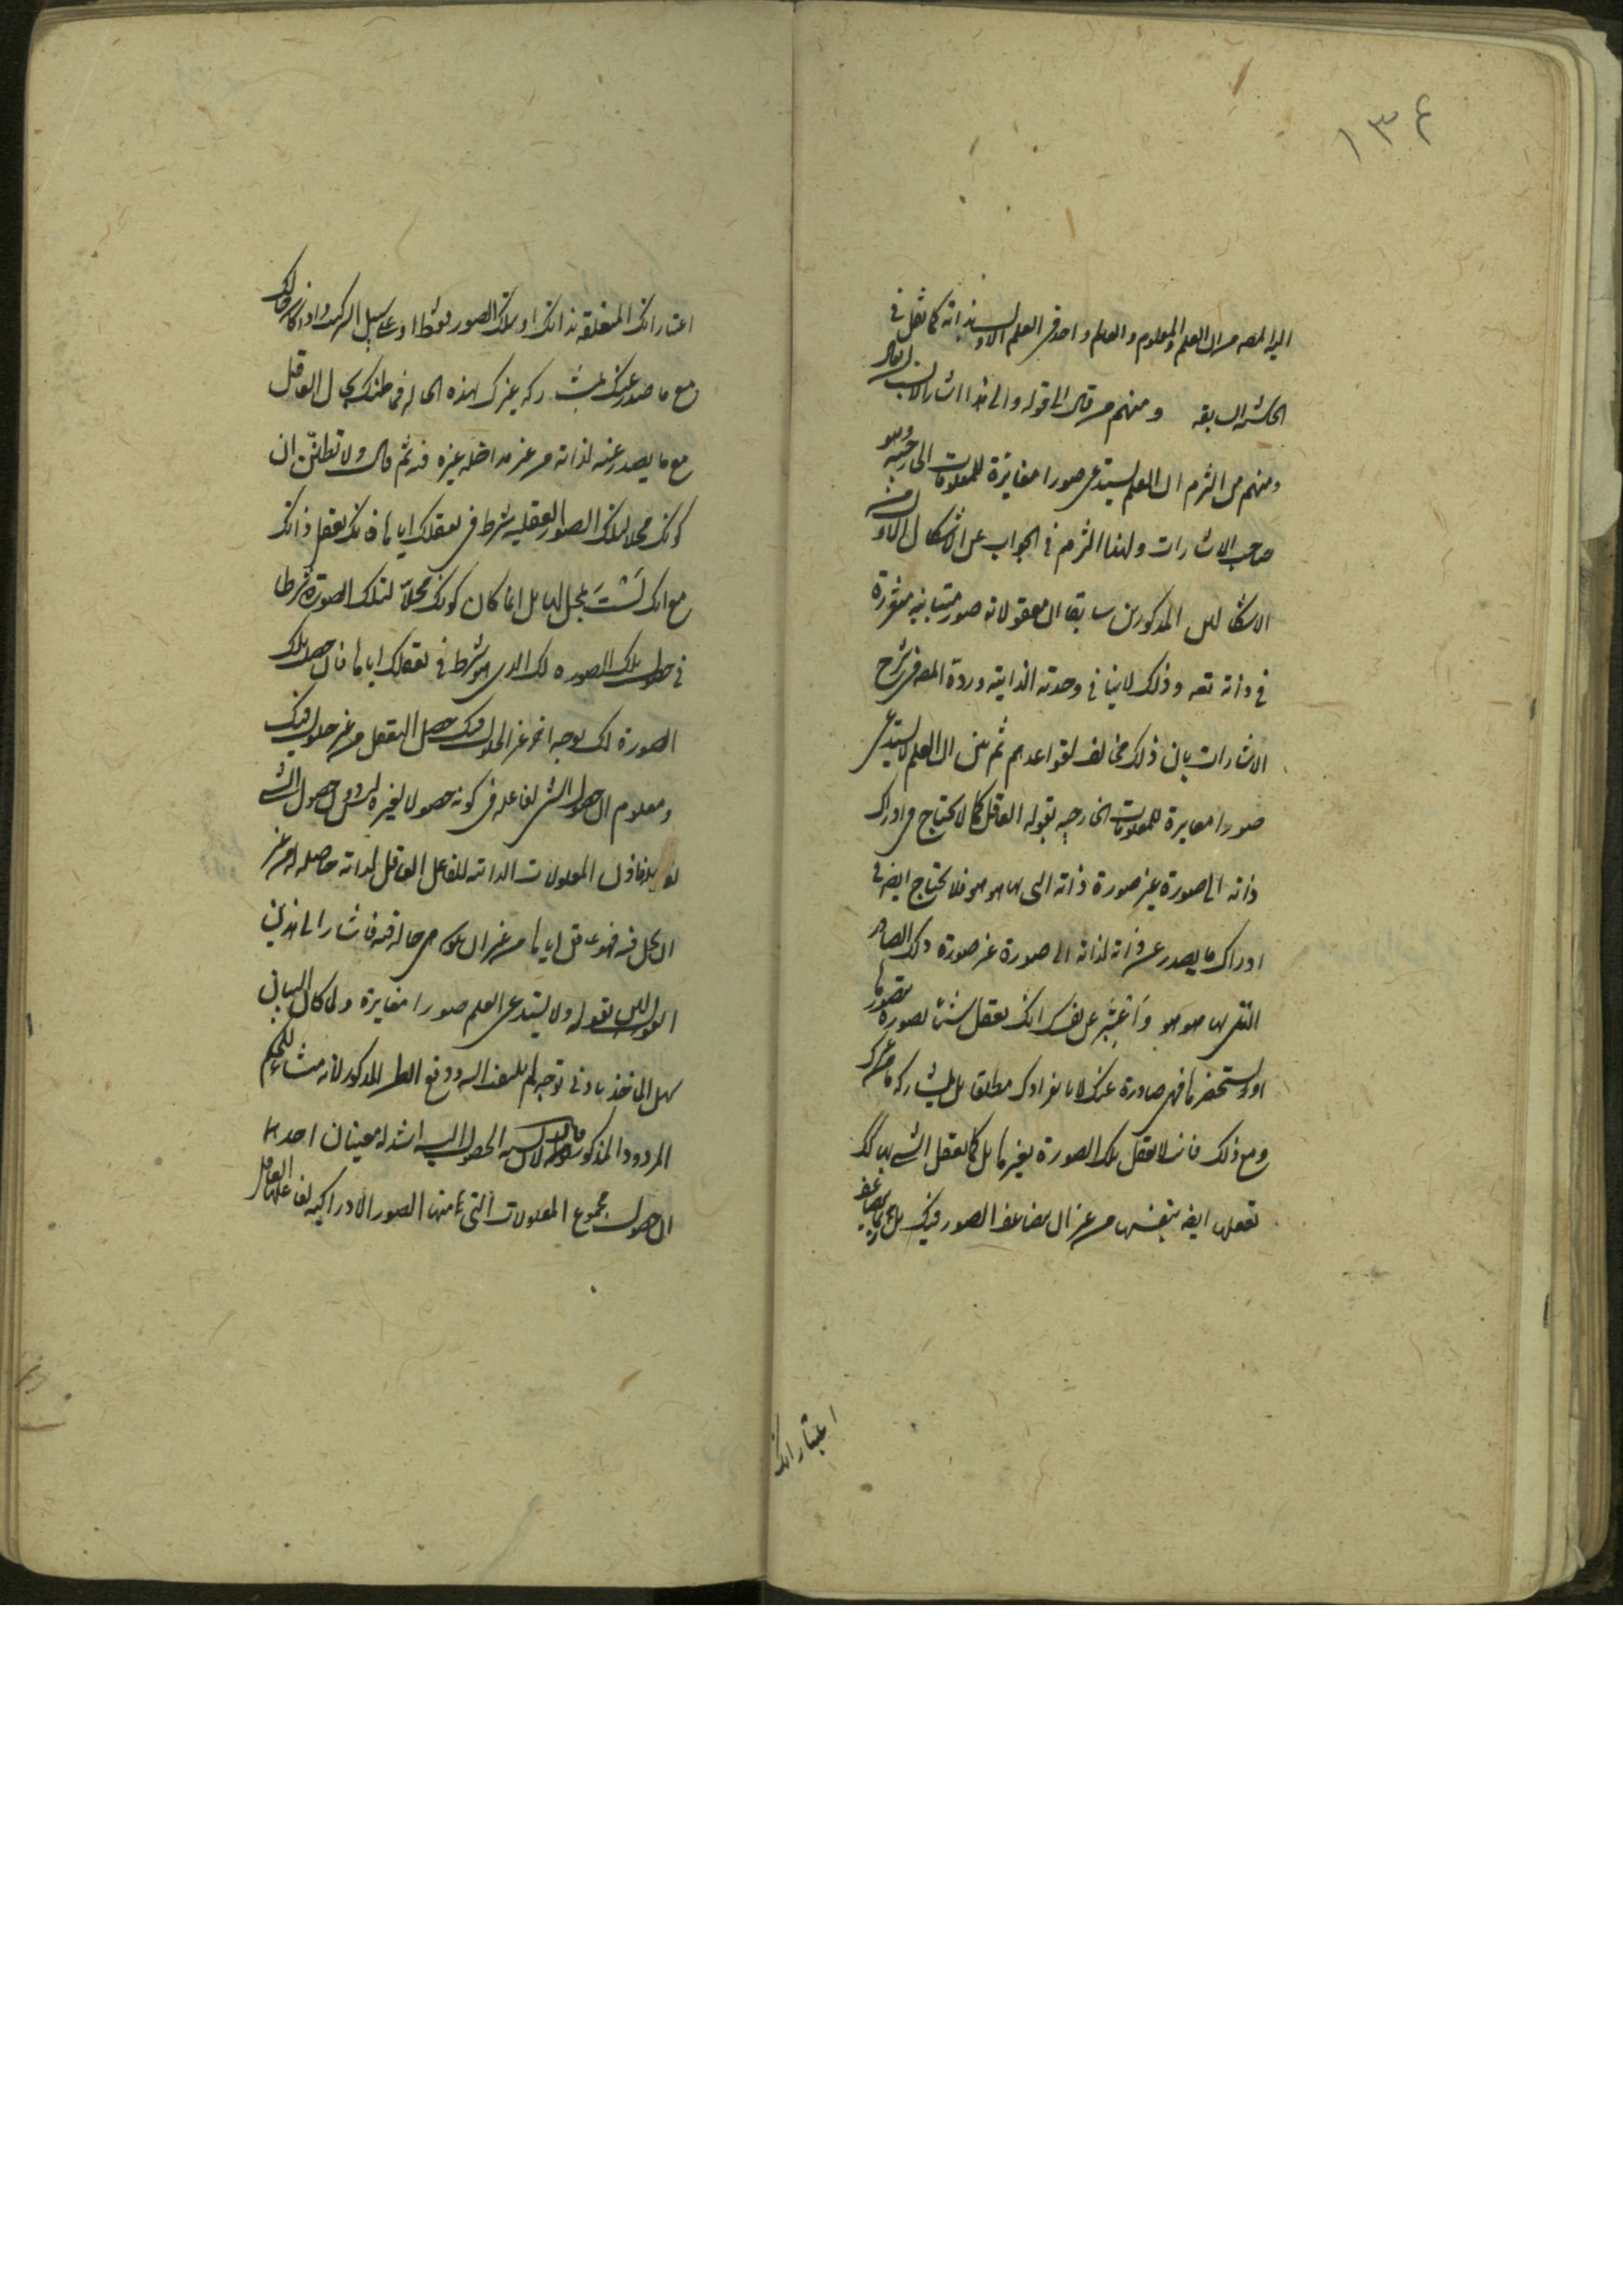 ١٣٤
اليه المصه من ان العلم والمعلوم والعالم واحد في العلم الاول بذاته كما نقل في
الحاشية السابقه ومنهم من قال الى قوله والى هذا اشار
ومنهم من التزم ان العلم يستدعى صورا مغايرة للمعلومات الخارجيه وهو
صاحب الاشارات ولهذا التزم في الجواب عن الاشكال الاول من
الاشكالين المذكورين سابقا ان معقولاته صور متباينه متقررة
في ذاته تعه وذلك لا ينافي وحدته الذاتية وردة المصه في شرح
الاشارات بان ذلك مخالف لقواعدهم ثم بين ان العلم لا يستدعى
صورا مغايرة للمعلومات الخارجيه بقوله العاقل كما لا يحتاج في ادراك
ذاته الى صورة غير صورة ذاته التى بها هو هو فلا يحتاج ايضه في
ادراك ما يصدر عن ذاته لذاته الى صورة غير صورة ذلك الصادر
التى بها هو هو وَاعْتَبِر من نفسك انك تعقل شيئا بصورة تتصورها
او تستحضرها فهى صادرة عنك لا بانفرادك مطلقا بل بمشاركه ما من غيرك
ومع ذلك فانت لا تعقل تلك الصورة بغيرها بل كما تعقل الشئ بها كذلك
تعقلها ايضه بنفسها من غير ان يتضاعف الصور فيك بل ربما يتضاعف
اعتباراتك
اعتباراتك المتعلقه بذاتك او بتلك الصور فقط او على سبيل التركيب واذا كان حالك
مع ما صدر عنك بمشاركه غيرك هذه الحاله فما ظنك بحال العاقل
مع ما يصدر عنه لذاته من غير مداخله غيره فيه ثم قال ولا تظنّن ان
كونك محلا لتلك الصور العقليه شرط في تعقلك اياها فانك تعقل ذاتك
مع انك لَسْتَ بمحل لها بل انما كان كونك محلاً لتلك الصورة شرطا
في حصول تلك الصوره لك الذى هو شرط في تعقلك اياها فان حصل تلك
الصورة لك بوجه اخر غير الحلول فيك حصل التعقل من غير حلول فيك
ومعلوم ان حصول الشئ لفاعله في كونه حصولا لغيره ليس دون حصول الشئ
لقابله فاذن المعلولات الذاتيه للفاعل العاقل لذاته حاصله له من غير
ان يحل فيه فهو عاقل اياها من غير ان يكون هى حالة فيه فاشار الى هذين
القولين بقوله ولا يستدعى العلم صورا مغايرة ولما كان البيان
سهل الماخذ بادنى توجه لم يلتفت اليه ودفع المذكور لانه منشاء للحكم
المردود المذكور قال لان نسبه الحصول اليه اشد له معنيان احدهما
ان حصول مجموع المعلولات التى منها الصور الادراكيه لفاعلها العاقل